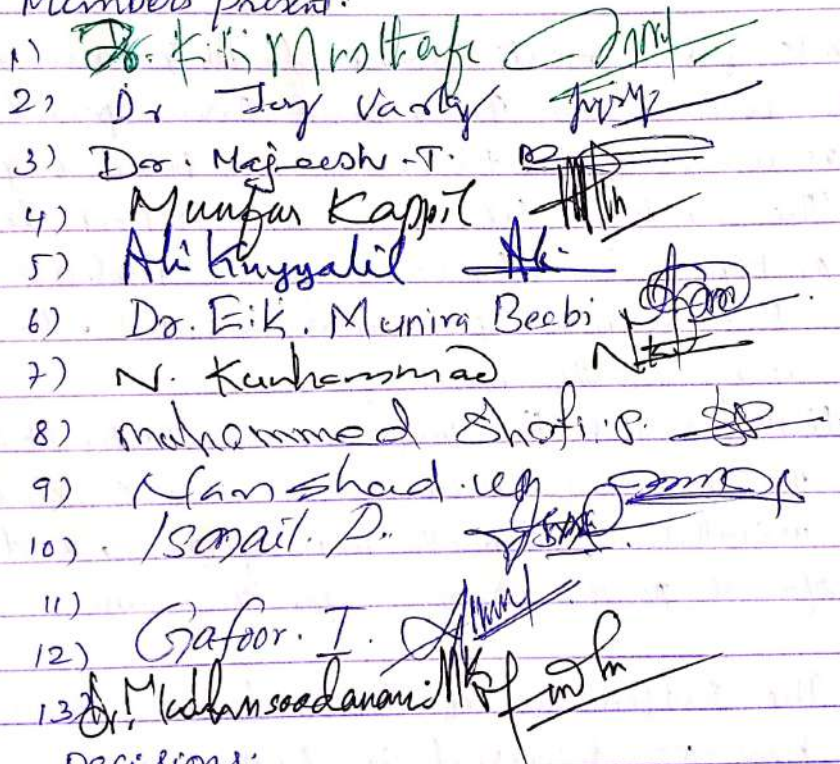 Members present:
1) Dr. K.K Musthafa
2) Dr Joy Varky
3) Dr. Majeesh .T.
4) Kappil
5) Ali
6) Dr. E.K. Munira Beebi
7) N. Kunhammad
8) mohammed Shafi.P.
9) Nanshad
10) Ismail P.
11)
12) Gafoor. I.
13) Dr.
Decisions: